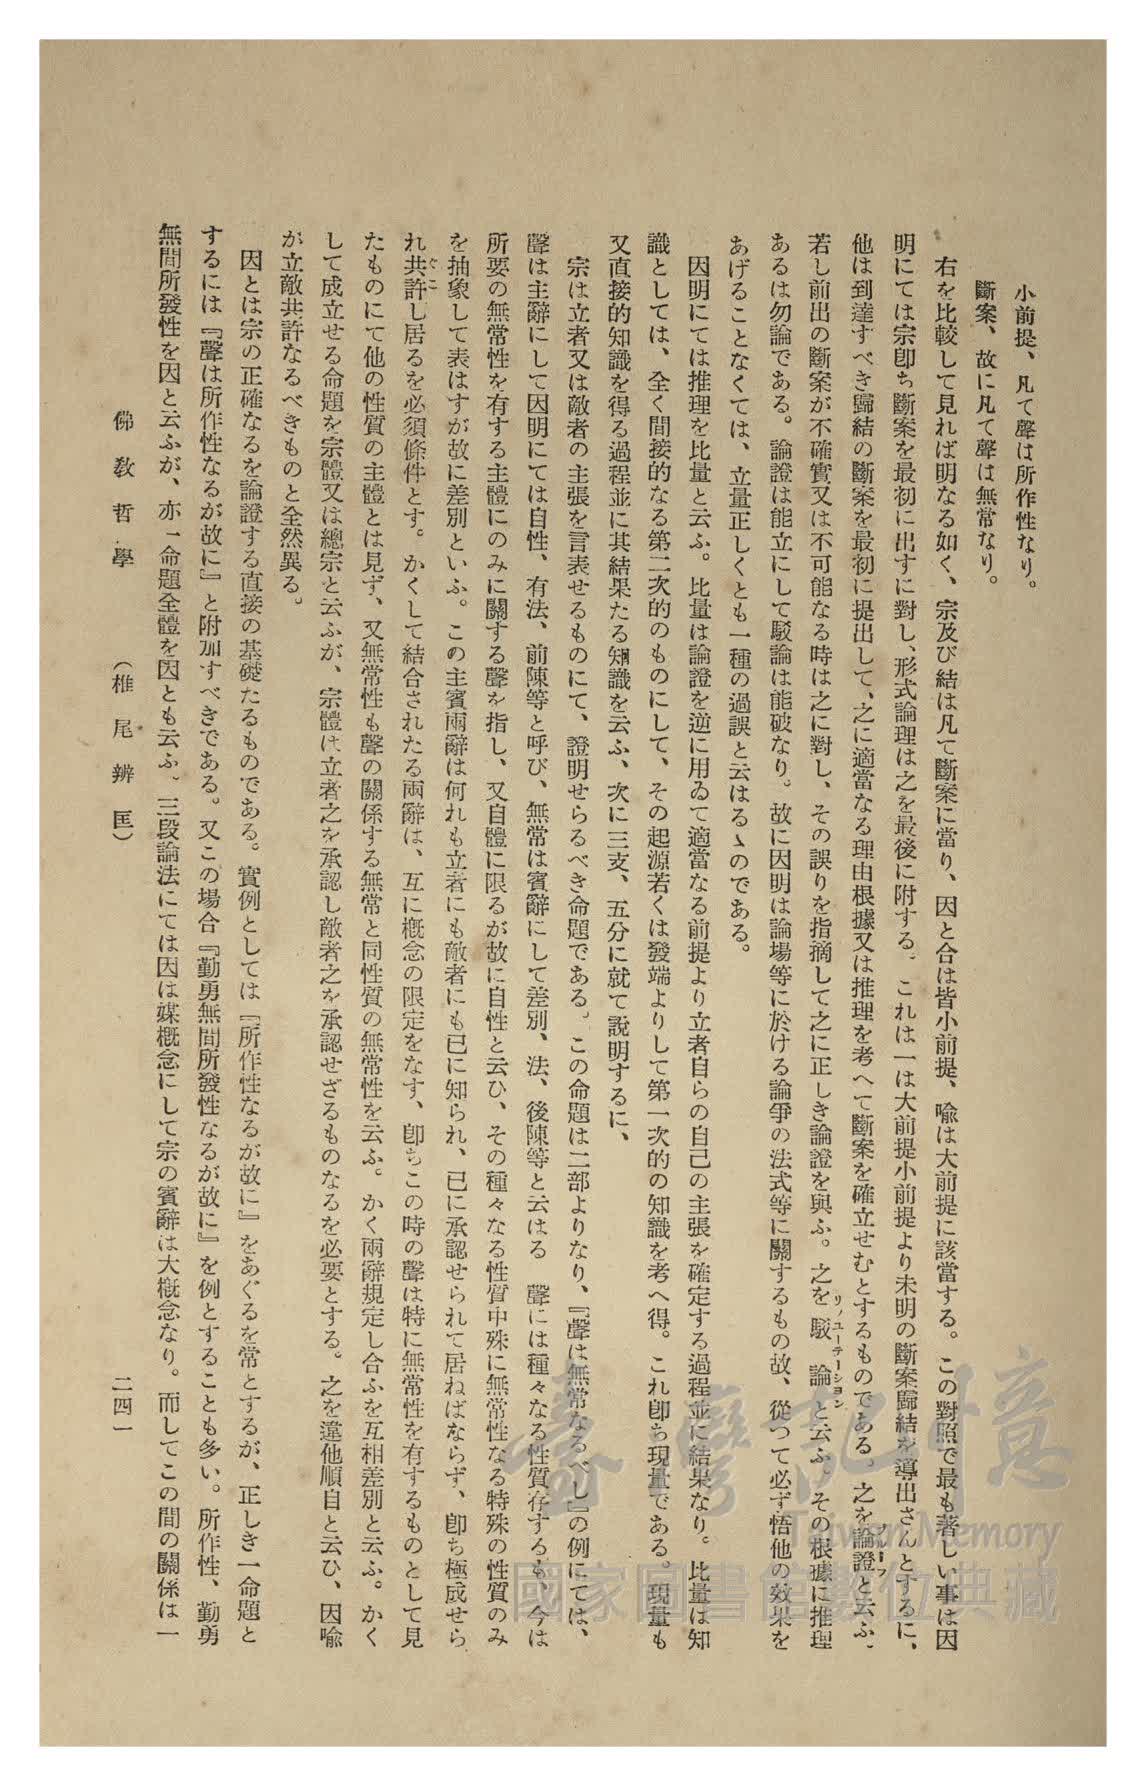 小前提、凡て聲は所作性なり。
斷案、故に凡て聲は無常なり。
右を比較して見れば明なる如く、宗及び結は凡て斷案に當り、因と合は皆小前提、喩は大前提に該當する。この對照で最も著しい事は因
明にては宗卽ち斷案を最初に出すに對し、形式論理は之を最後に附する。これは一は大前提小前提より未明の斷案歸結を導出さんとするに、
他は到達すべき歸結の斷案を最初に提出して、之に適當なる理由根據又は推理を考へて斷案を確立せむとするものである。之を論證と云ふ。
若し前出の斷案が不確實又は不可能なる時は之に對し、その誤りを指摘して之に正しき論證を與ふ。之を駁論と云ふ。その根據に推理
あるは勿論である。論證は能立にして駁論は能破なり。故に因明は論場等に於ける論爭の法式等に關するもの故、從つて必ず悟他の效果を
あげることなくては、立量正しくとも一種の過誤と云はるゝのである。
因明にては推理を比量と云ふ。比量は論證を逆に用ゐて適當なる前提より立者自らの自己の主張を確定する過程並に結果なり。比量は知
識としては、全く間接的なる第二次的のものにして、その起源若くは發端よりして第一次的の知識を考へ得。これ卽ち現量である。現量も
又直接的知識を得る過程並に其結果たる知識を云ふ、次に三支、五分に就て說明するに、
宗は立者又は敵者の主張を言表せるものにて、證明せらるべき命題である。この命題は二部よりなり、『聲は無常なるべし』の例にては、
聲は主辭にして因明にては自性、有法、前陳等と呼び、無常は賓辭にして差別、法、後陳等と云はる　聲には種々なる性質存するも、今は
所要の無常性を有する主體にのみに關する聲を指し、又自體に限るが故に自性と云ひ、その種々なる性質中殊に無常性なる特殊の性質のみ
を抽象して表はすが故に差別といふ。この主賓兩辭は何れも立者にも敵者にも已に知られ、已に承認せられて居ねばならず、卽ち極成せら
れ共許し居るを必須條件とす。かくして結合されたる兩辭は、互に槪念の限定をなす、卽ちこの時の聲は特に無常性を有するものとして見
たものにて他の性質の主體とは見ず、又無常性も聲の關係する無常と同性質の無常性を云ふ。かく兩辭規定し合ふを互相差別と云ふ。かく
して成立せる命題を宗體又は總宗と云ふが、宗體は立者之を承認し敵者之を承認せざるものなるを必要とする。之を違他順自と云ひ、因喩
が立敵共許なるべきものと全然異る。
因とは宗の正確なるを論證する直接の基礎たるものである。實例としては『所作性なるが故に』をあぐるを常とするが、正しき一命題と
するには『聲は所作性なるが故に』と附加すべきである。又この場合『勤勇無間所發性なるが故に』を例とすることも多い。所作性、勤勇
無間所發性を因と云ふが、亦一命題全體を因とも云ふ。三段論法にては因は媒槪念にして宗の賓辭は大槪念なり。而してこの間の關係は一
佛敎哲學　（椎尾辨匡）　二四一
リフューテーション
プルーフ
ぐこ
臺灣記憶
Taiwan Memory
國家圖書館數位典藏